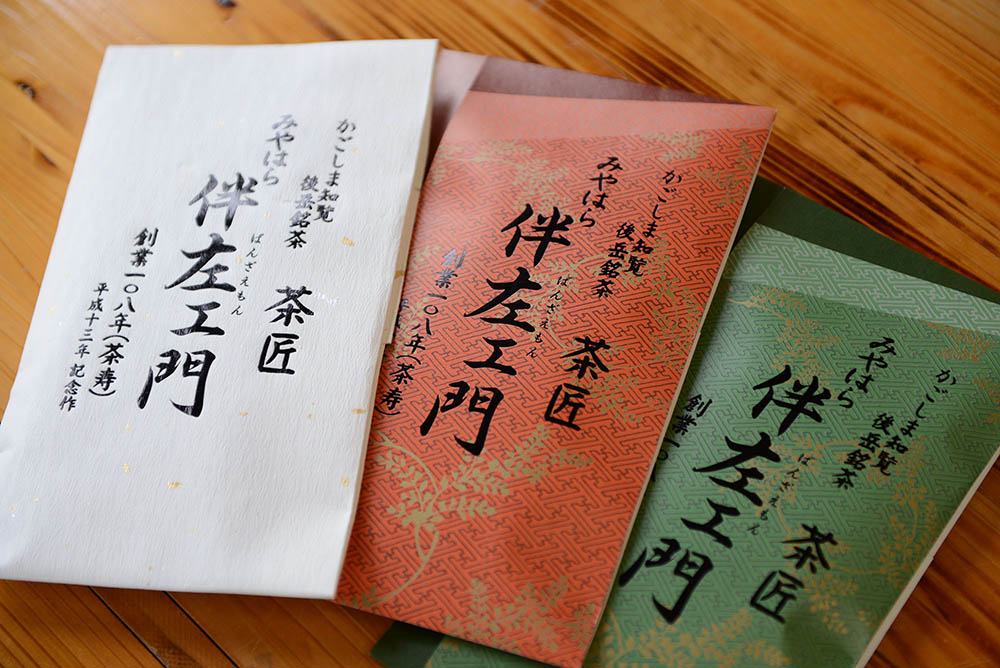 かごしま知覧
後岳銘茶
茶匠
みやはら
伴左エ門
ばんざえもん
創業一〇八年(茶寿)
平成十三年 記念作
かごしま知覧
後岳銘茶
茶匠
みやはら
伴左エ門
ばんざえもん
創業一〇八年(茶寿)
かごしま知覧
後岳銘茶
茶匠
みやはら
伴左エ門
ばんざえもん
創業一〇